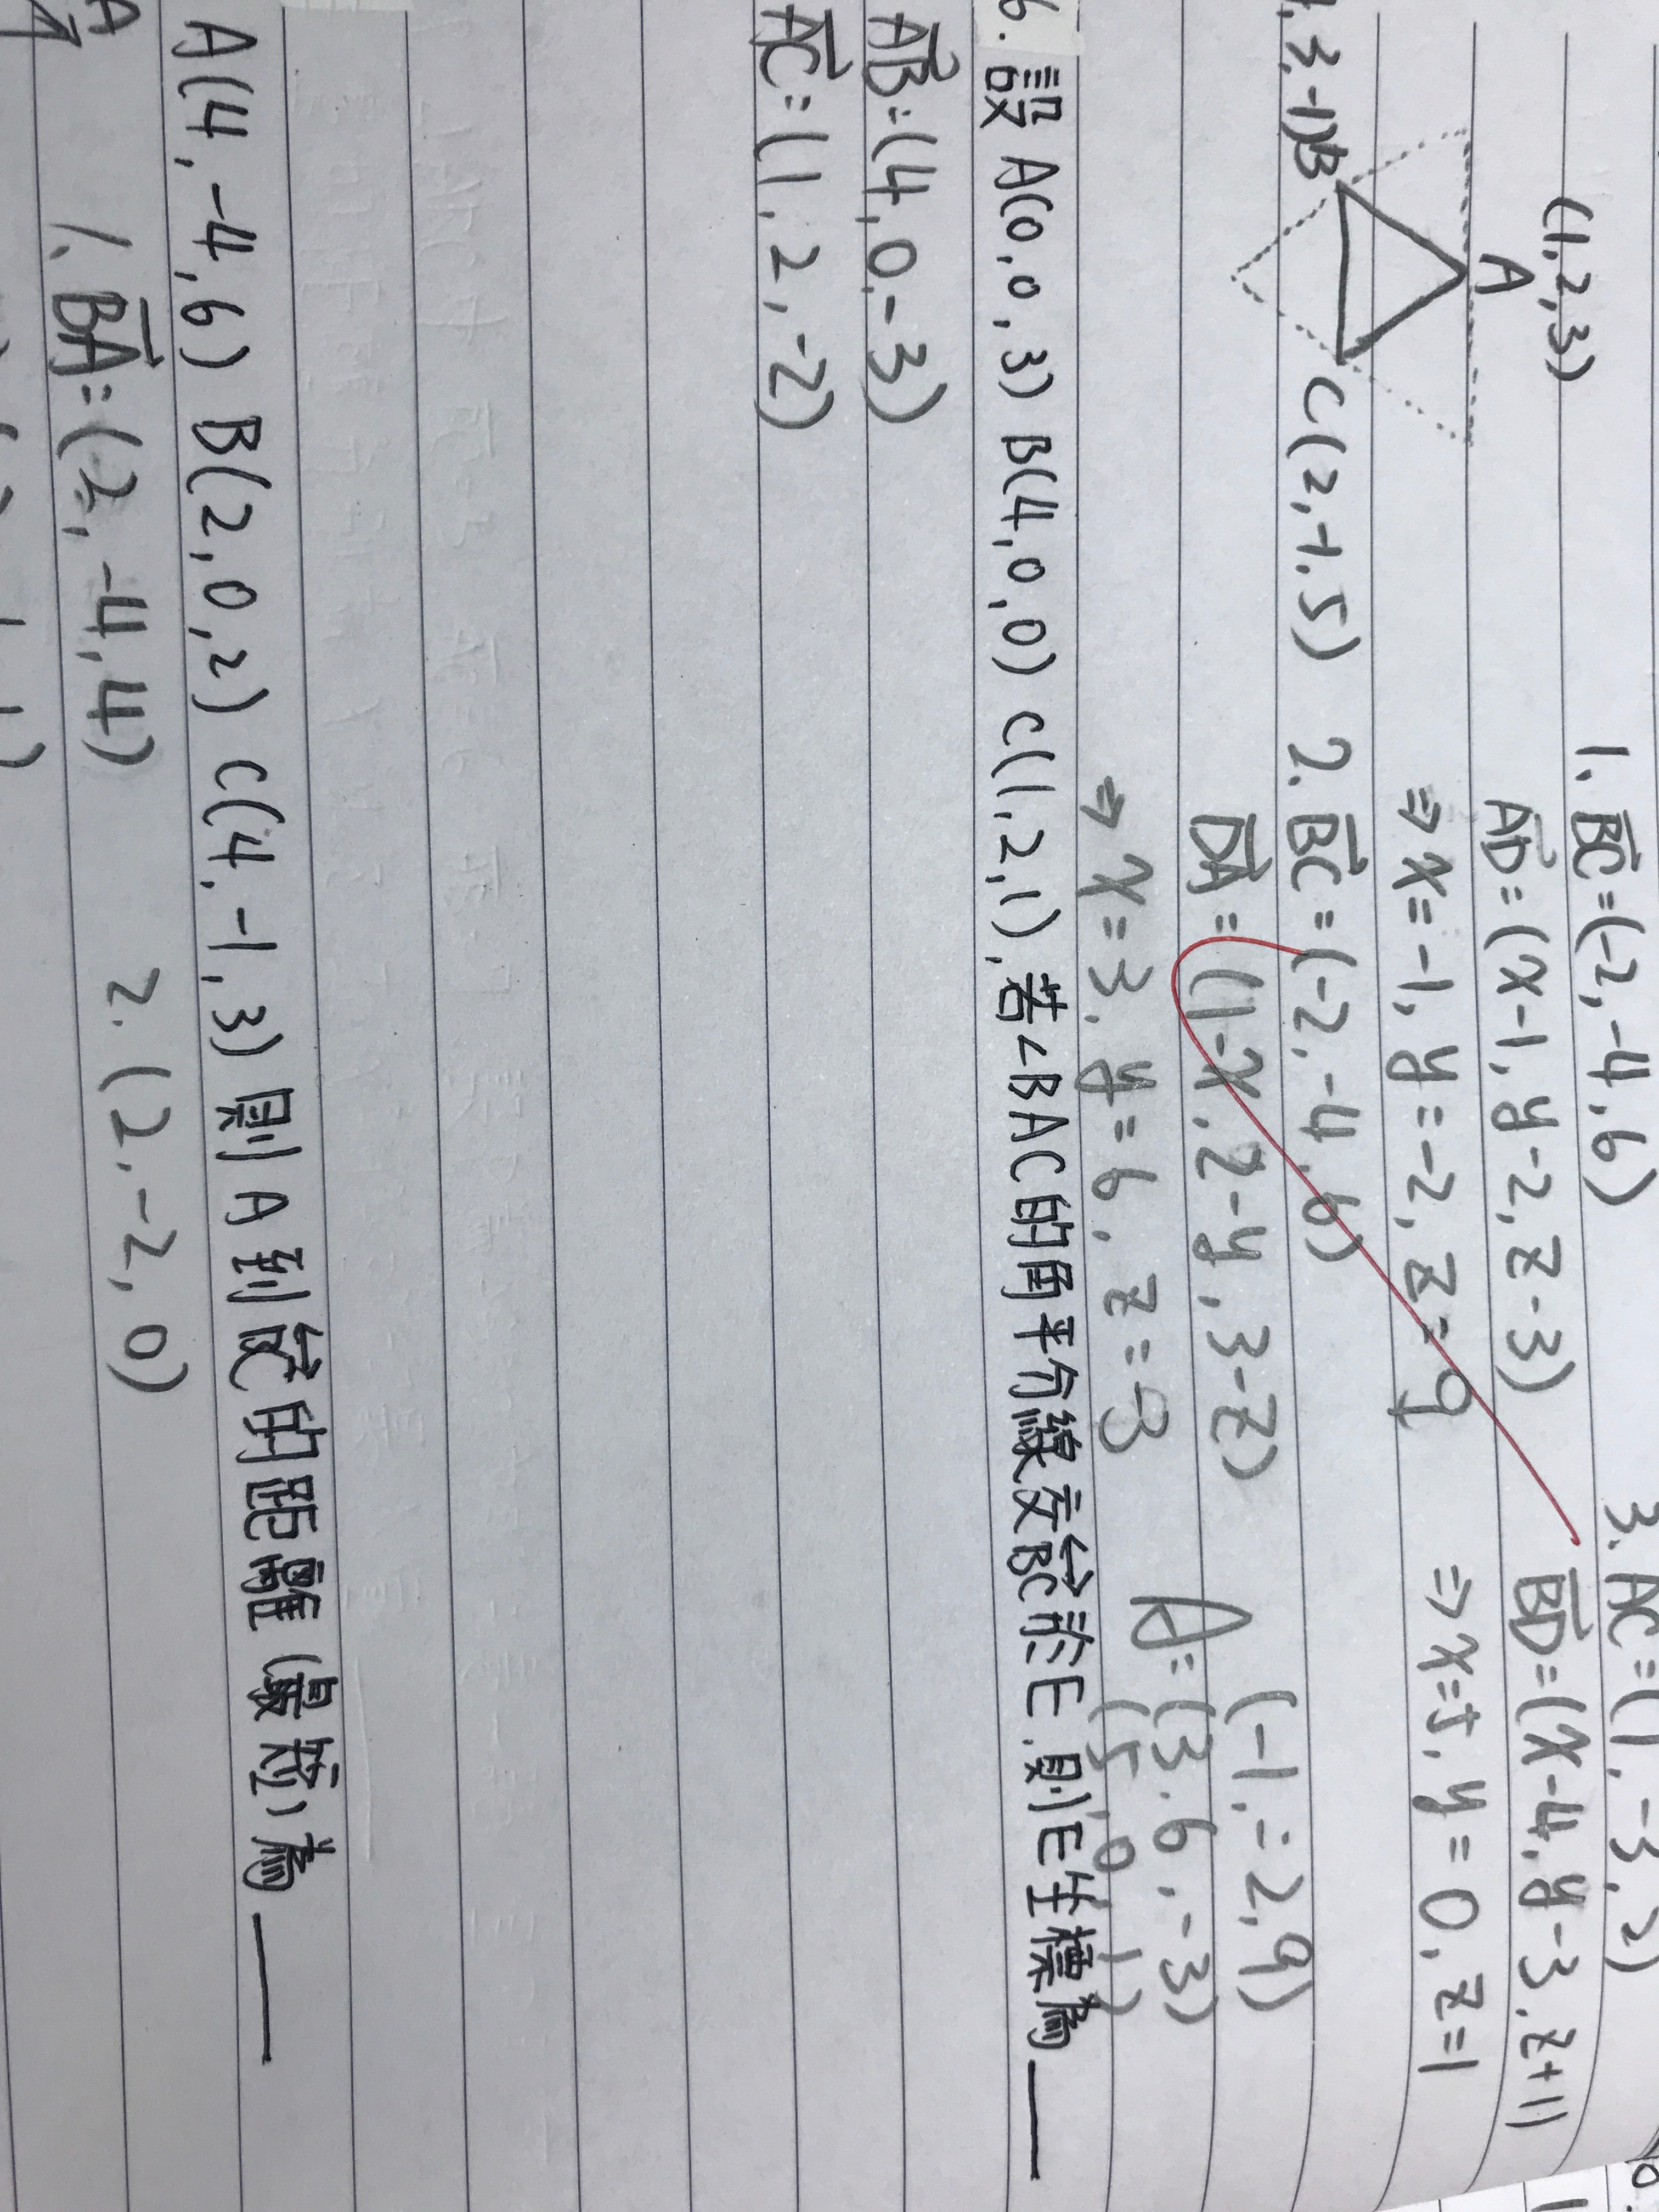 (1,2,3)
A
,3,-1)B
C(2,-1,5)
1. BC=(-2,-4,6)
AD=(x-1,y-2,z-3)
⇒x=-1,y=-2,z=9
2. BC=(-2,-4,6)
DA=(1-x,2-y,3-z)
⇒x=3,y=6,z=-3
3. AC=(1,-3,2)
BD=(x-4,y-3,z+1)
⇒x=5,y=0,z=1
(-1,-2,9)
A=(3,6,-3)
(5,0,1)
6. 設 A(0,0,3) B(4,0,0) C(1,2,1),若∠BAC的角平分線交BC於E,則E坐標為
AB=(4,0,-3)
AC=(1,2,-2)
A(4,-4,6) B(2,0,2) C(4,-1,3) 則 A 到 BC 的距離(最短)為
1. BA=(2,-4,4)
2. (2,-2,0)
A